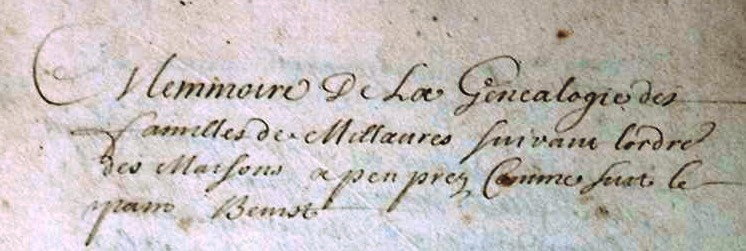 Memmoire De La Genealogie des
familles de Millaures suivant lordre
des Maisons a peu prez Comme suit le
pain Benist